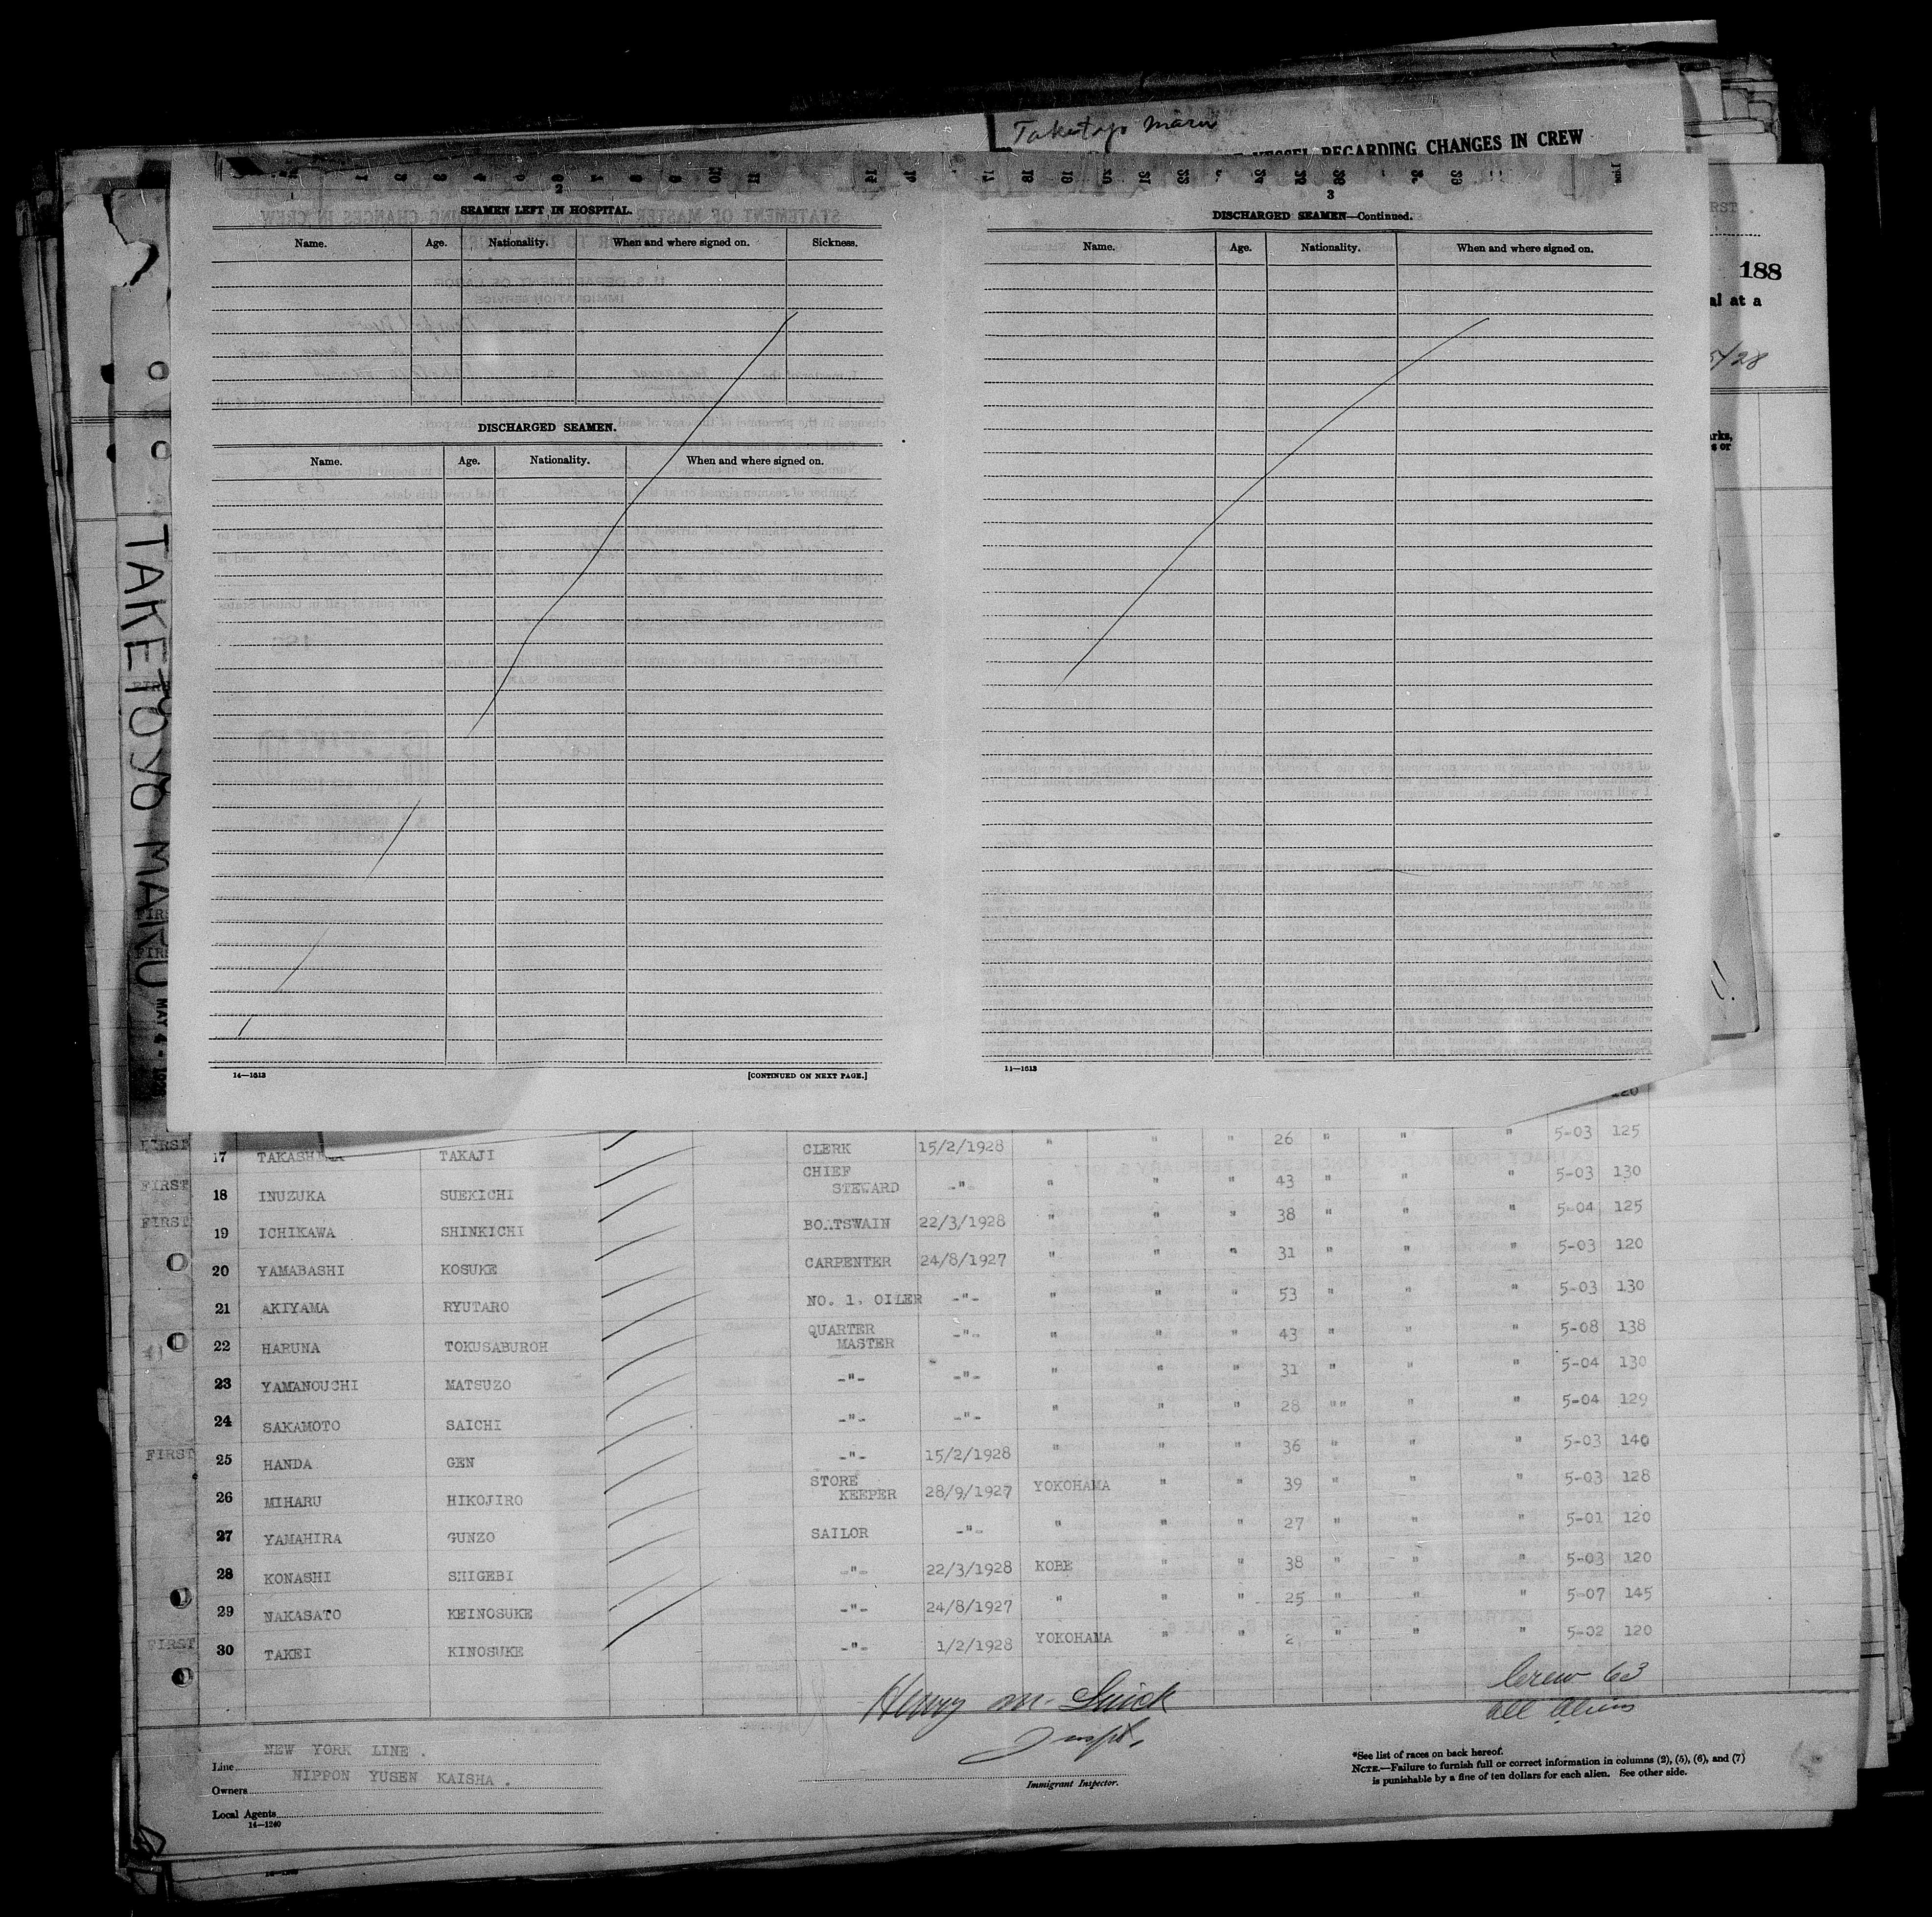 Taketoyo Maru
VESSEL REGARDING CHANGES IN CREW
2
SEAMEN LEFT IN HOSPITAL.
Name. Age. Nationality. When and where signed on. Sickness.
DISCHARGED SEAMEN.
Name. Age. Nationality. When and where signed on.
14—1613
[CONTINUED ON NEXT PAGE.]
3
DISCHARGED SEAMEN—Continued.
Name. Age. Nationality. When and where signed on.
14—1613
188
al at a
/28
TAKETOYO MARU
MAY 4 -
120
FIRST 17 TAKASHIMA TAKAJI CLERK 15/2/1928 " " " 26 " " " 5-03 125
FIRST 18 INUZUKA SUEKICHI CHIEF STEWARD -"- " " " 43 " " " 5-03 130
FIRST 19 ICHIKAWA SHINKICHI BOATSWAIN 22/3/1928 " " " 38 " " " 5-04 125
20 YAMABASHI KOSUKE CARPENTER 24/8/1927 " " " 31 " " " 5-03 120
21 AKIYAMA RYUTARO NO. 1. OILER -"- " " " 53 " " " 5-03 130
22 HARUNA TOKUSABUROH QUARTER MASTER -"- " " " 43 " " " 5-08 138
23 YAMANOUCHI MATSUZO -"- -"- " " " 31 " " " 5-04 130
24 SAKAMOTO SAICHI -"- -"- " " " 28 "" " " 5-04 129
FIRST 25 HANDA GEN -"- 15/2/1928 " " " 36 " " " 5-03 140
26 MIHARU HIKOJIRO STORE KEEPER 28/9/1927 YOKOHAMA " " 39 " " " 5-03 128
27 YAMAHIRA GUNZO SAILOR -"- " " " 27 " " " 5-01 120
28 KONASHI SHIGEBI -"- 22/3/1928 KOBE " " 38 " " " 5-03 120
29 NAKASATO KEINOSUKE -"- 24/8/1927 " " " 25 " " " 5-07 145
FIRST 30 TAKEI KINOSUKE -"- 1/2/1928 YOKOHAMA " " " " " 5-02 120
Crew 63
all Aliens
Henry M.
Inspt.
Immigrant Inspector.
Line NEW YORK LINE.
Owners NIPPON YUSEN KAISHA.
Local Agents
14—1240
*See list of races on back hereof.
NOTE.—Failure to furnish full or correct information in columns (2), (5), (6), and (7)
is punishable by a fine of ten dollars for each alien. See other side.